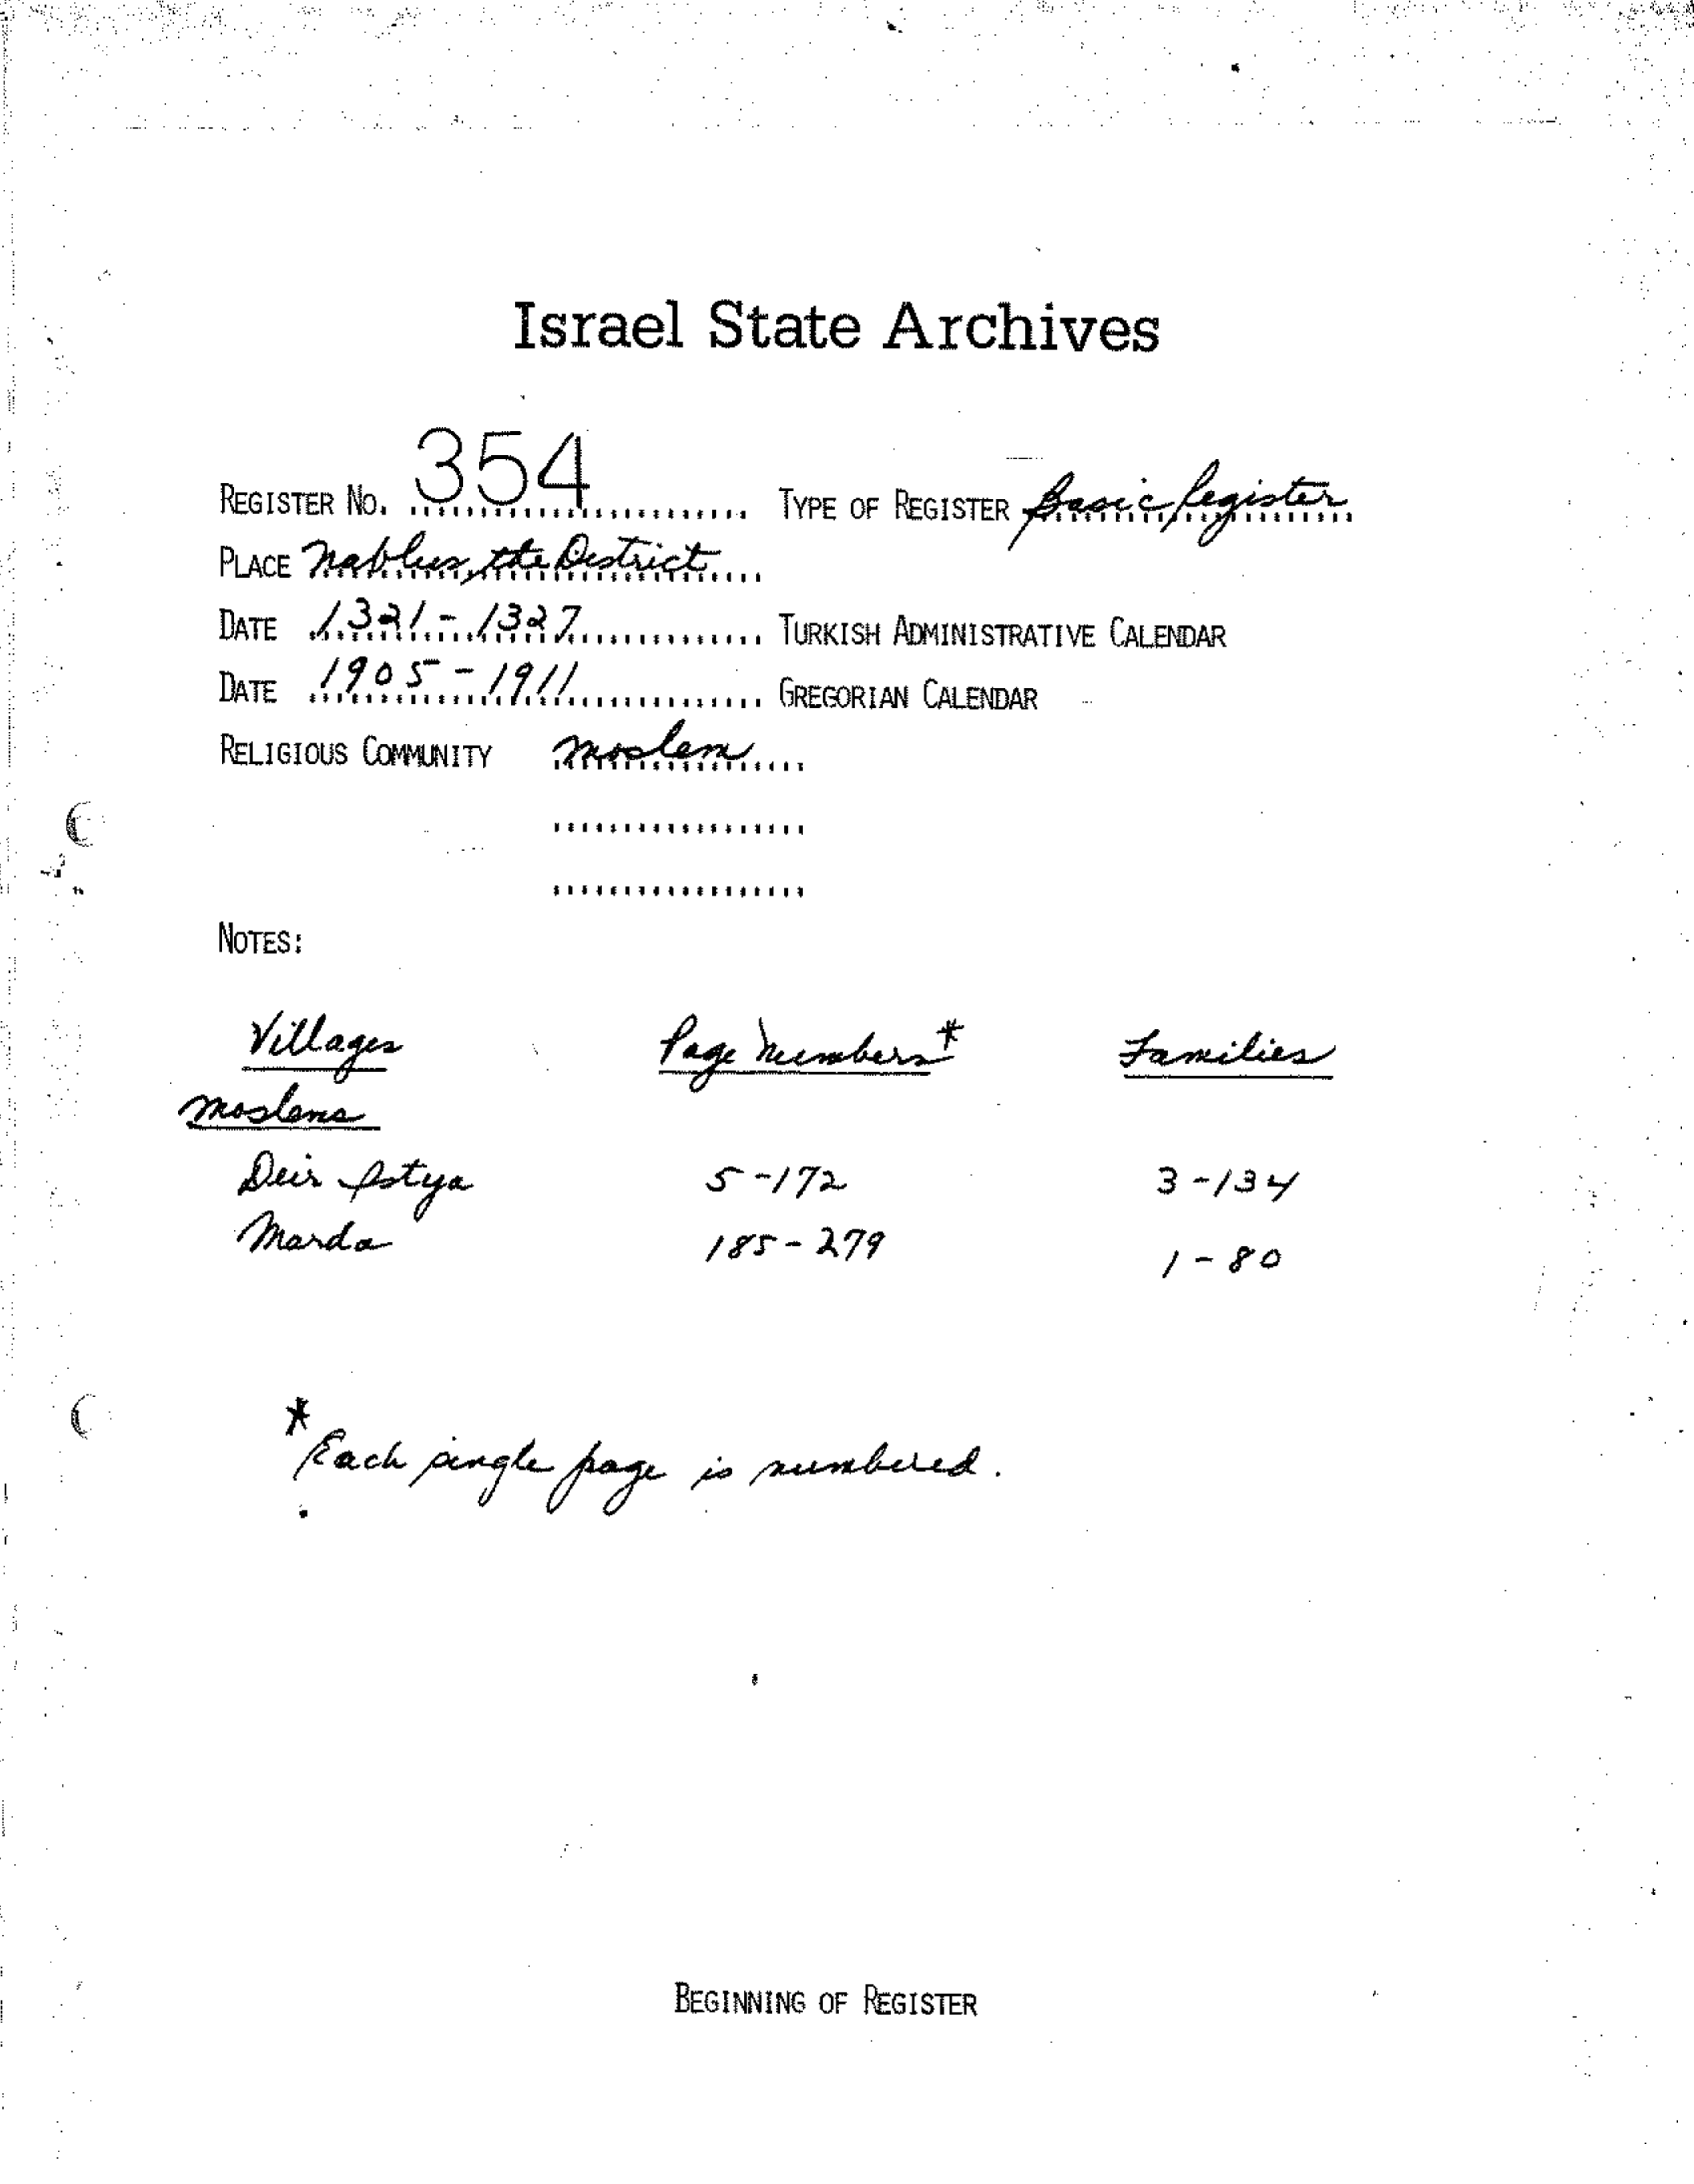 Israel State Archives
REGISTER NO. 354 TYPE OF REGISTER Basic Register
PLACE Nablus, the District
DATE 1321 - 1327 TURKISH ADMINISTRATIVE CALENDAR
DATE 1905 - 1911 GREGORIAN CALENDAR
RELIGIOUS COMMUNITY Moslem
NOTES:
Villages Page Numbers* Families
Moslems
Deir Istya 5-172 3-134
Marda 185-279 1-80
* Each single page is numbered.
BEGINNING OF REGISTER